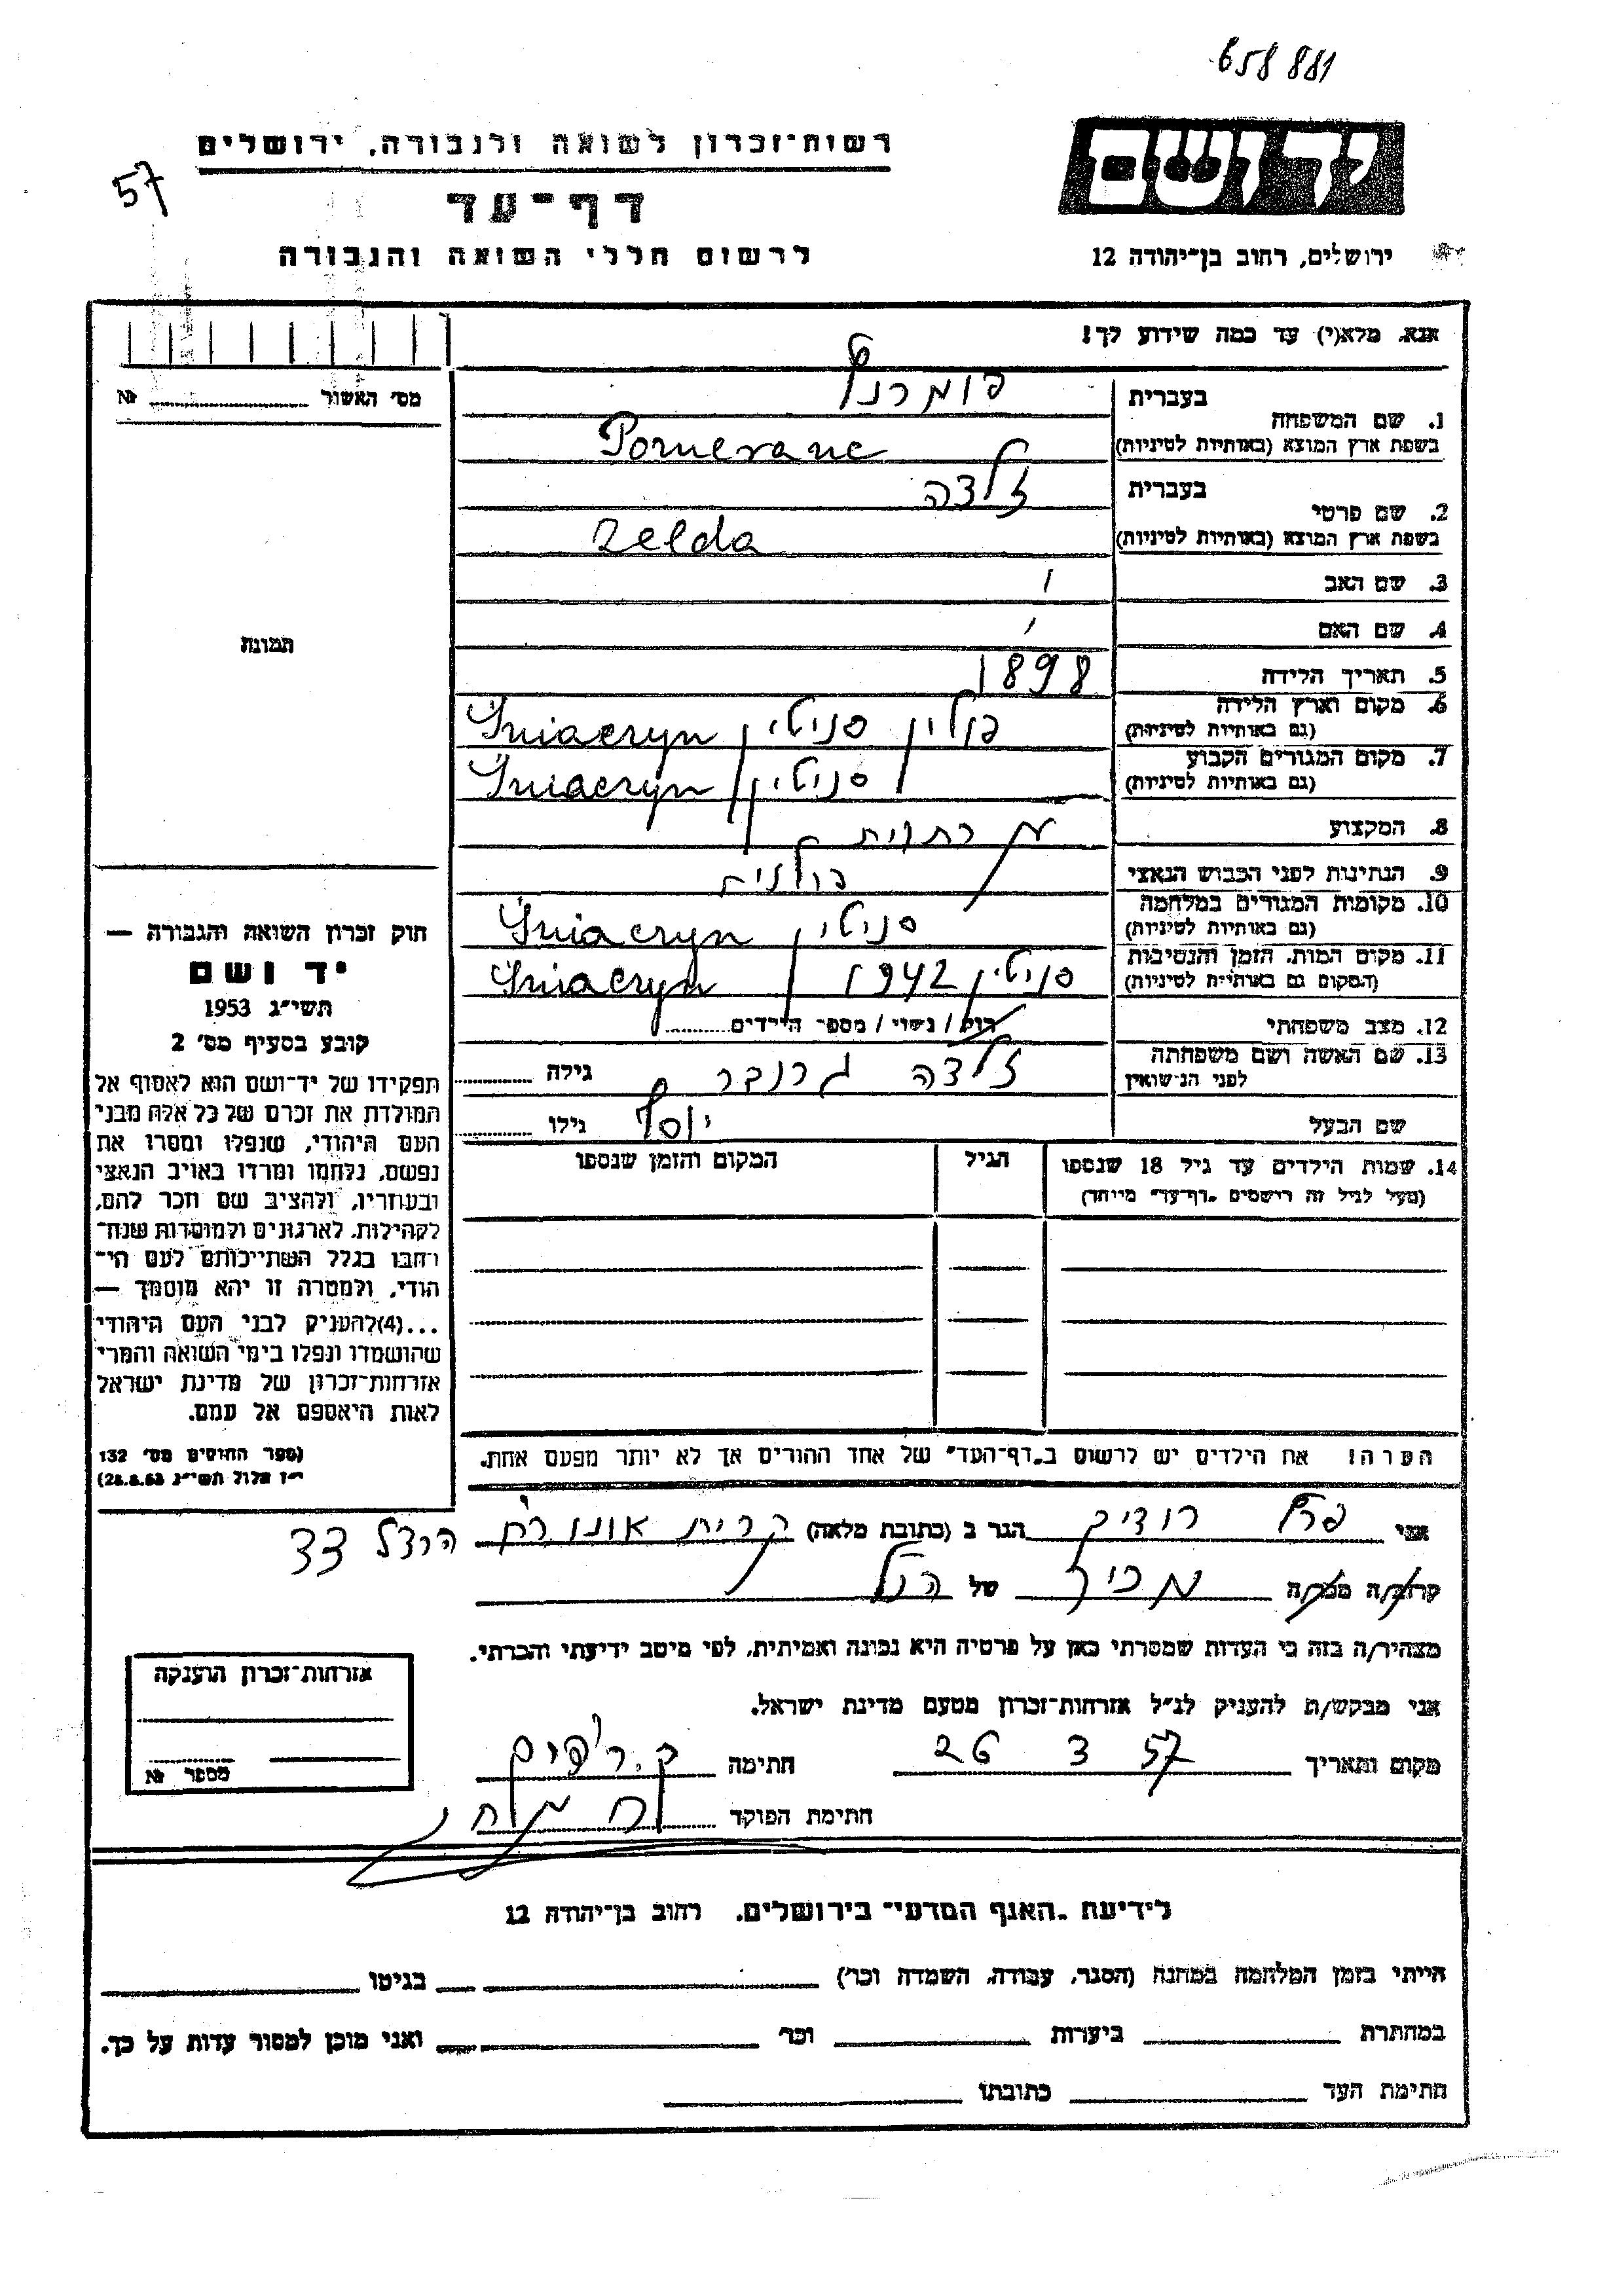 658 881
יד ושם
רשות-זכרון לשואה ולגבורה, ירושלים
57
דף-עד
לרשום חללי השואה והגבורה
ירושלים, רחוב בן-יהודה 12
אנא, מלא(י) עד כמה שידוע לך!
מס' האשור № 
1. שם המשפחה
בעברית
פומרנץ
בשפת ארץ המוצא (באותיות לטיניות)
Pomeranc
2. שם פרטי
בעברית
זלדה
בשפת ארץ המוצא (באותיות לטיניות)
Zelda
3. שם האב
4. שם האם
5. תאריך הלידה 1898
6. מקום וארץ הלידה
(גם באותיות לטיניות)
פולין סניטין Śniaczyn
7. מקום המגורים הקבוע
(גם באותיות לטיניות)
סניטין Śniaczyn
8. המקצוע
9. הנתינות לפני הכבוש הנאצי פולנית
10. מקומות המגורים במלחמה
(גם באותיות לטיניות)
סניטין Śniaczyn
11. מקום המות, הזמן והנסיבות
(המקום גם באותיות לטיניות)
סניטין 1942 Śniaczyn
12. מצב משפחתי רוק / נשוי / מספר הילדים
13. שם האשה ושם משפחתה
לפני הנישואין
זלדה גרנבר גילה
שם הבעל יוסף גילו
14. שמות הילדים עד גיל 18 שנספו הגיל המקום והזמן שנספו
(מעל לגיל זה רושמים "דף-עד" מיוחד)
תמונה
חוק זכרון השואה והגבורה —
יד ושם
תשי"ג 1953
קובע בסעיף מס' 2
תפקידו של יד-ושם הוא לאסוף אל
המולדת את זכרם של כל אלה מבני
העם היהודי, שנפלו ומסרו את
נפשם, נלחמו ומרדו באויב הנאצי
ובעוזריו, ולהציב שם וזכר להם,
לקהילות, לארגונים ולמוסדות שנח-
רבו בגלל השתייכותם לעם הי-
הודי, ולמטרה זו יהא מוסמך —
...(4)להעניק לבני העם היהודי
שהושמדו ונפלו בימי השואה והמרי
אזרחות-זכרון של מדינת ישראל
לאות היאספם אל עמם.
(ספר החוקים מס' 132
י"ז אלול תשי"ג 28.8.53)
הערה! את הילדים יש לרשום ב"דף-העד" של אחד ההורים אך לא יותר מפעם אחת.
אני רודיך הגר ב (כתובת מלאה) קרית אונו הרצל 33
קרוב/ה מכר/ה מכיר של הנ"ל
מצהיר/ה בזה כי העדות שמסרתי כאן על פרטיה היא נכונה ואמיתית, לפי מיטב ידיעתי והכרתי.
אני מבקש/ת להעניק לנ"ל אזרחות-זכרון מטעם מדינת ישראל.
מקום ותאריך 26 3 57 חתימה
חתימת הפוקד
אזרחות-זכרון הוענקה
מספר №
לידיעת "האגף המדעי" בירושלים, רחוב בן-יהודה 12
הייתי בזמן המלחמה במחנה (הסגר, עבודה, השמדה וכו') בגיטו
במחתרת ביערות וכו' ואני מוכן למסור עדות על כך.
חתימת העד כתובתו